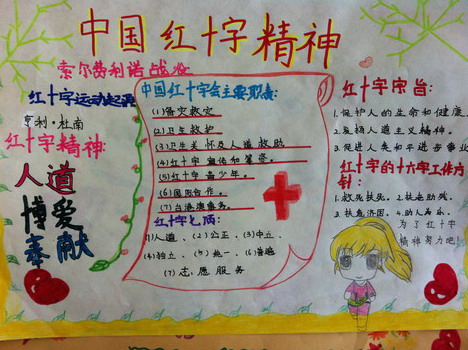 中国红十字精神
索尔费利诺战役
红十字运动起源
亨利·杜南
红十字精神:
人道
博爱
奉献
中国红十字会主要职责:
(1)备灾救灾
(2)卫生救护
(3)卫生关怀及人道救助
(4)红十字宣传和筹资。
(5)红十字青少年。
(6)国际合作。
(7)台港澳事务。
红十字七项
(1)人道、(2)公正、(3)中立、
(4)独立、(5)统一、(6)普遍
(7)志愿服务
红十字宗旨:
1.保护人的生命和健康、
2.发扬人道主义精神。
3.促进人类和平进步事业
红十字的十六字工作方
针:
1.救死扶死。2.扶危助残。
3.扶危济困。4.助人为乐。
为了红十字
精神努力吧!